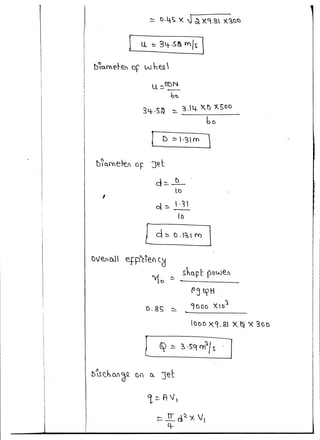 = 0.45 × √2×9.81×300
u = 34.52 m/s
Diameter of wheel
u = πDN
60
34.52 = 3.14 × D × 500
60
D = 1.31m
Diameter of Jet
d = D
10
d = 1.31
10
d = 0.131 m
Overall efficiency
η₀ = shaft power
ρgQH
0.85 = 9000 × 10³
1000 × 9.81 × Q × 300
Q = 3.59 m³/s
Discharge on a Jet
q = A V₁
= π d² × V₁
4